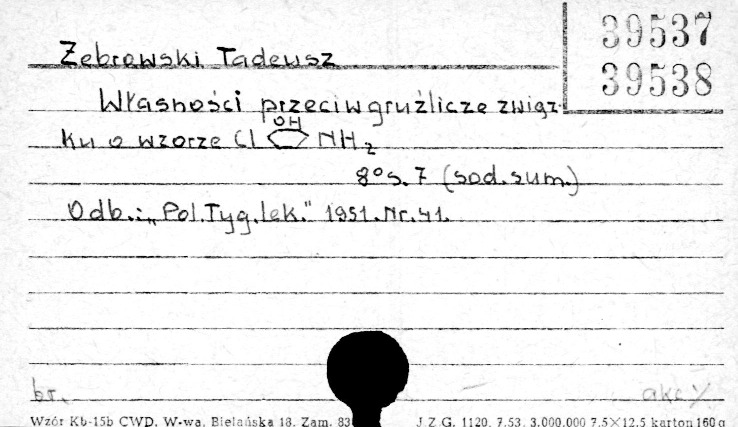 39537
39538
Zebrowski Tadeusz
Własności przeciwgruźlicze związ-
ku o wzorze Cl OH NH2
8°s.7 (sod.sum.)
Odb.: „Pol.Tyg.lek." 1951.Nr.41.
br. akc
Wzór Kb-15b CWD, W-wa, Bielańska 18. Zam. J.Z.G. 1120. 7.53. 3.000.000 7,5×12,5 karton 160 g